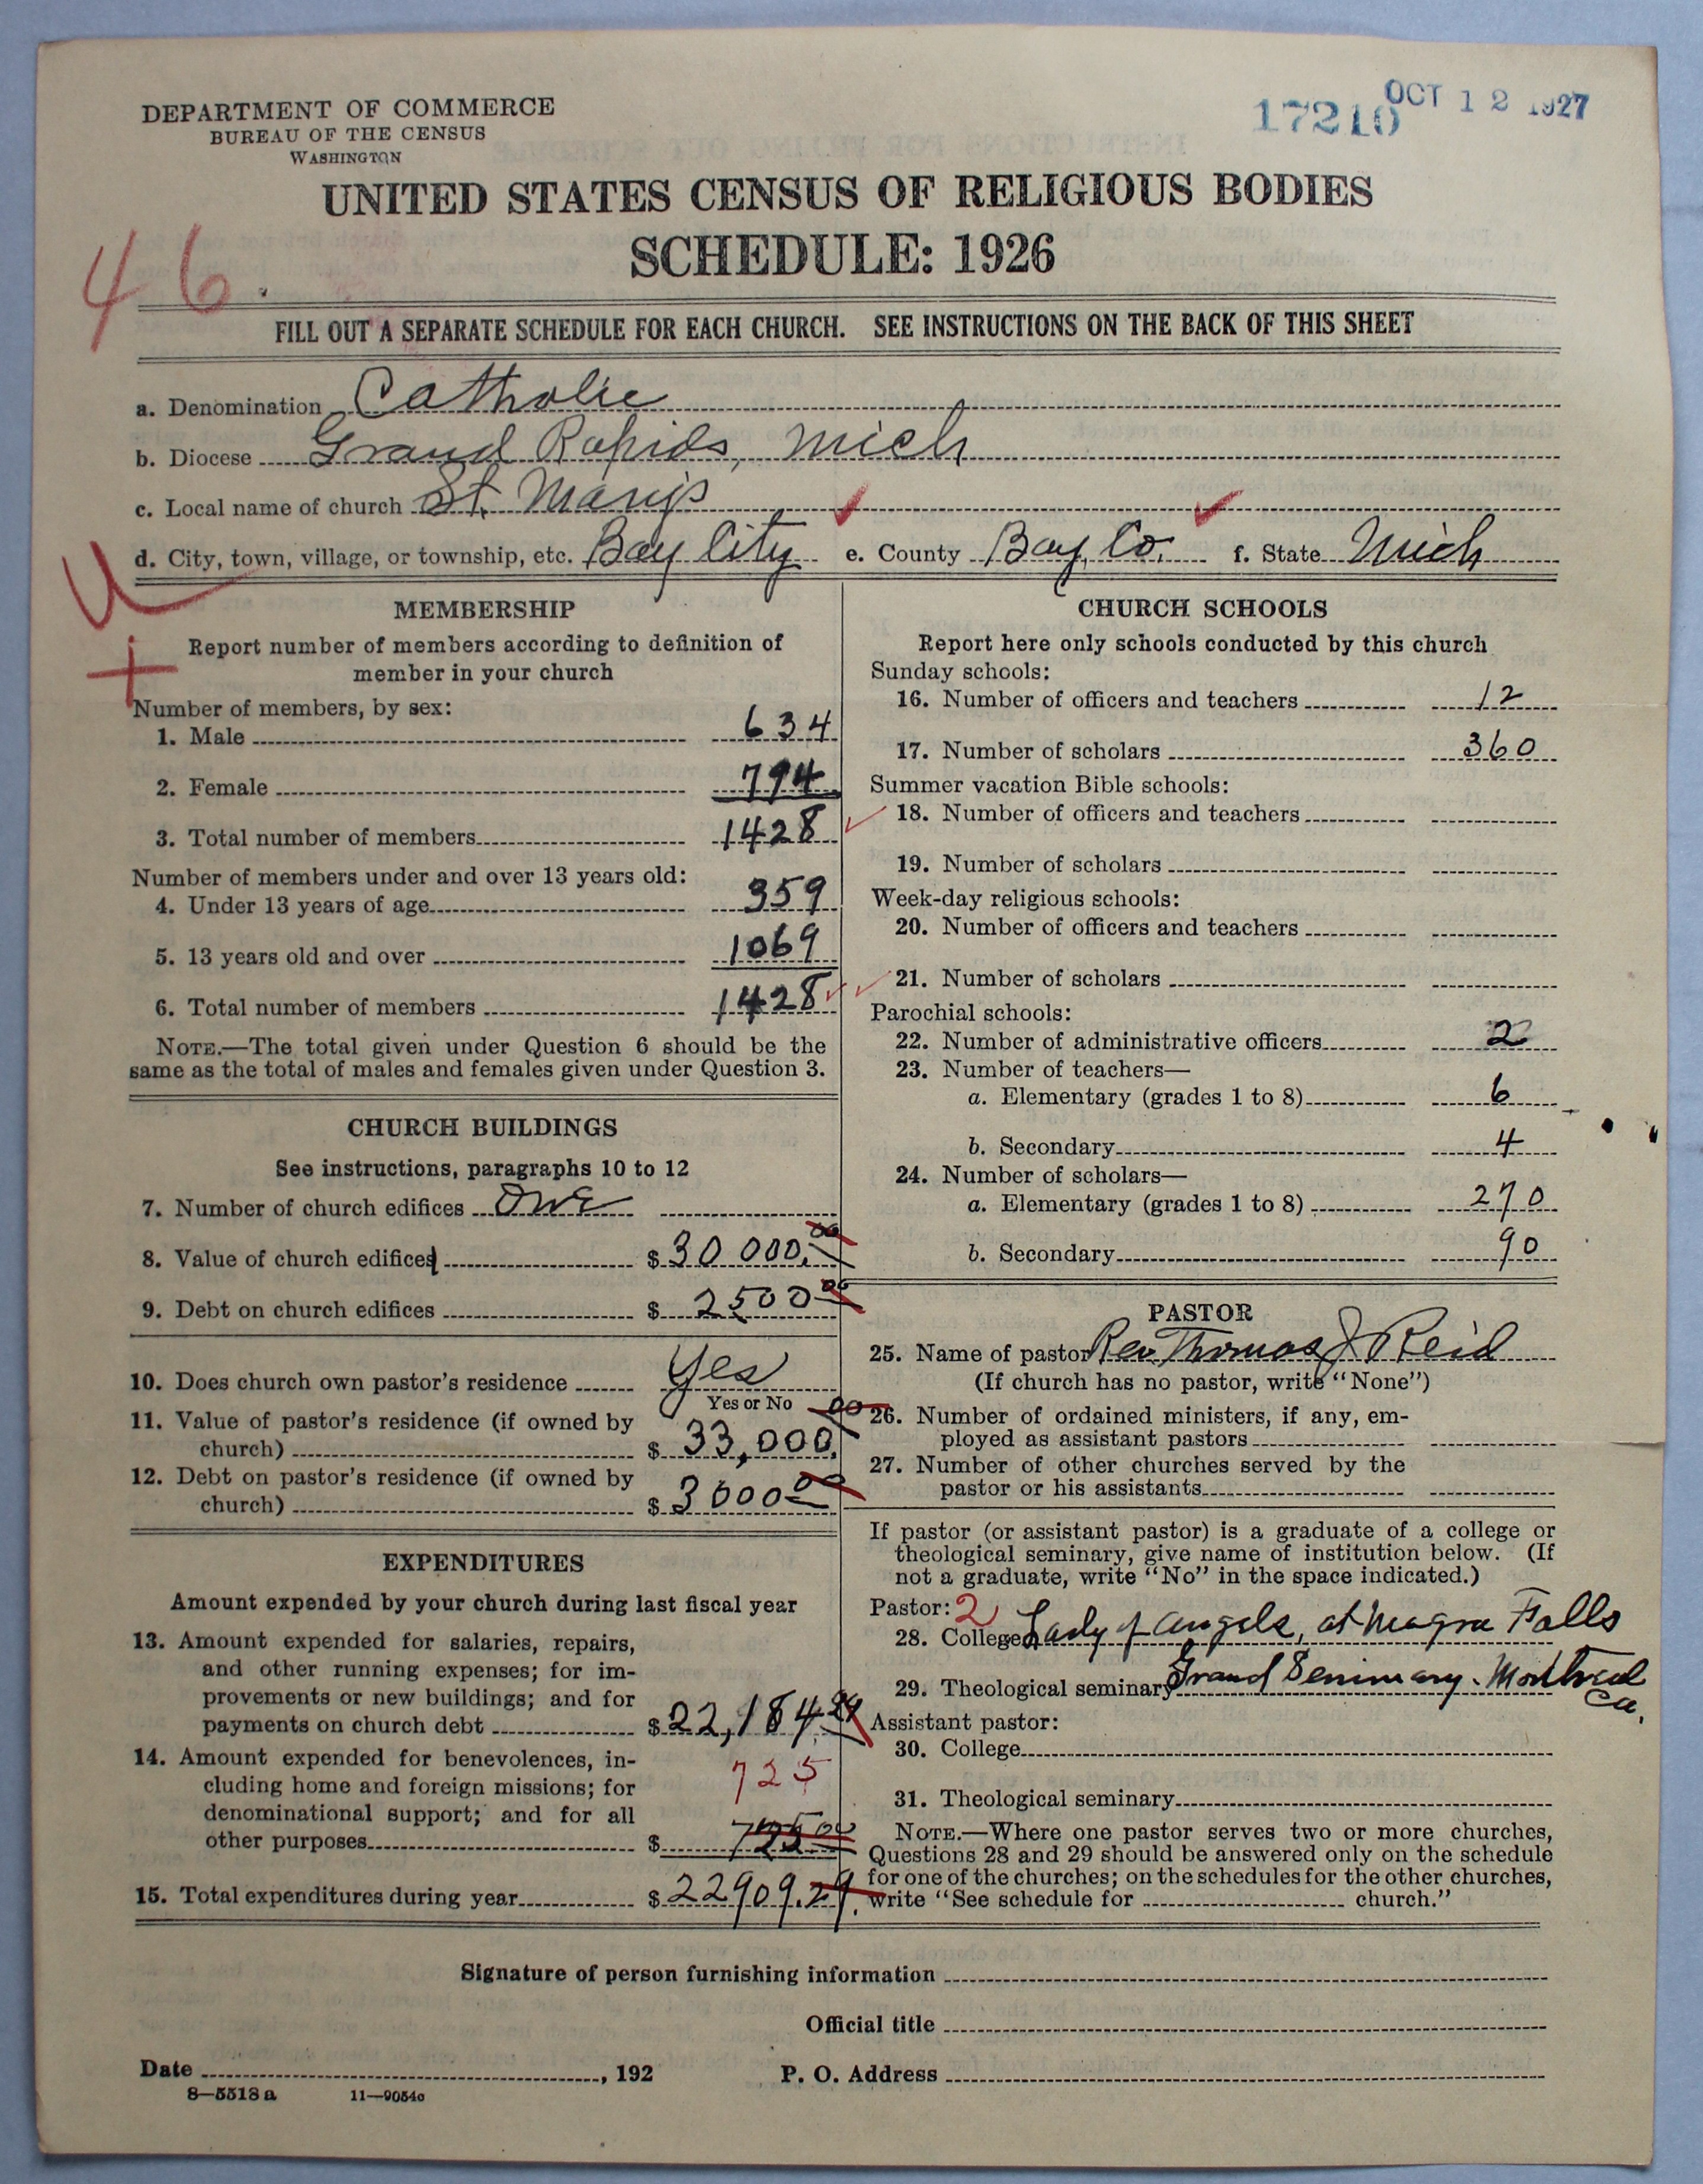 DEPARTMENT OF COMMERCE
BUREAU OF THE CENSUS
WASHINGTON
17210 OCT 12 1927
UNITED STATES CENSUS OF RELIGIOUS BODIES
SCHEDULE: 1926
46
FILL OUT A SEPARATE SCHEDULE FOR EACH CHURCH. SEE INSTRUCTIONS ON THE BACK OF THIS SHEET
a. Denomination Catholic
b. Diocese Grand Rapids, Mich
c. Local name of church St. Mary's
d. City, town, village, or township, etc. Bay City e. County Bay, Co. f. State Mich
MEMBERSHIP
Report number of members according to definition of
member in your church
Number of members, by sex:
1. Male 634
2. Female 794
3. Total number of members 1428
Number of members under and over 13 years old:
4. Under 13 years of age 359
5. 13 years old and over 1069
6. Total number of members 1428
NOTE.—The total given under Question 6 should be the
same as the total of males and females given under Question 3.
CHURCH BUILDINGS
See instructions, paragraphs 10 to 12
7. Number of church edifices One
8. Value of church edifices $ 30 000.00
9. Debt on church edifices $ 2500 00
10. Does church own pastor's residence Yes
Yes or No
11. Value of pastor's residence (if owned by
church) $ 33,000.00
12. Debt on pastor's residence (if owned by
church) $ 3000 00
EXPENDITURES
Amount expended by your church during last fiscal year
13. Amount expended for salaries, repairs,
and other running expenses; for im-
provements or new buildings; and for
payments on church debt $ 22,184.29
14. Amount expended for benevolences, in-
cluding home and foreign missions; for 725
denominational support; and for all
other purposes $ 725.00
15. Total expenditures during year $ 22909.29
CHURCH SCHOOLS
Report here only schools conducted by this church
Sunday schools:
16. Number of officers and teachers 12
17. Number of scholars 360
Summer vacation Bible schools:
18. Number of officers and teachers
19. Number of scholars
Week-day religious schools:
20. Number of officers and teachers
21. Number of scholars
Parochial schools:
22. Number of administrative officers 2
23. Number of teachers—
a. Elementary (grades 1 to 8) 6
b. Secondary 4
24. Number of scholars—
a. Elementary (grades 1 to 8) 270
b. Secondary 90
PASTOR
25. Name of pastor Rev. Thomas J Reid
(If church has no pastor, write "None")
26. Number of ordained ministers, if any, em-
ployed as assistant pastors
27. Number of other churches served by the
pastor or his assistants
If pastor (or assistant pastor) is a graduate of a college or
theological seminary, give name of institution below. (If
not a graduate, write "No" in the space indicated.)
Pastor: 2
28. College Lady of Angels, at Niagra Falls
29. Theological seminary Grand Seminary. Montreal
Ca.
Assistant pastor:
30. College
31. Theological seminary
NOTE.—Where one pastor serves two or more churches,
Questions 28 and 29 should be answered only on the schedule
for one of the churches; on the schedules for the other churches,
write "See schedule for church."
Signature of person furnishing information
Official title
Date , 192 P. O. Address
8—5518 a 11—9054c